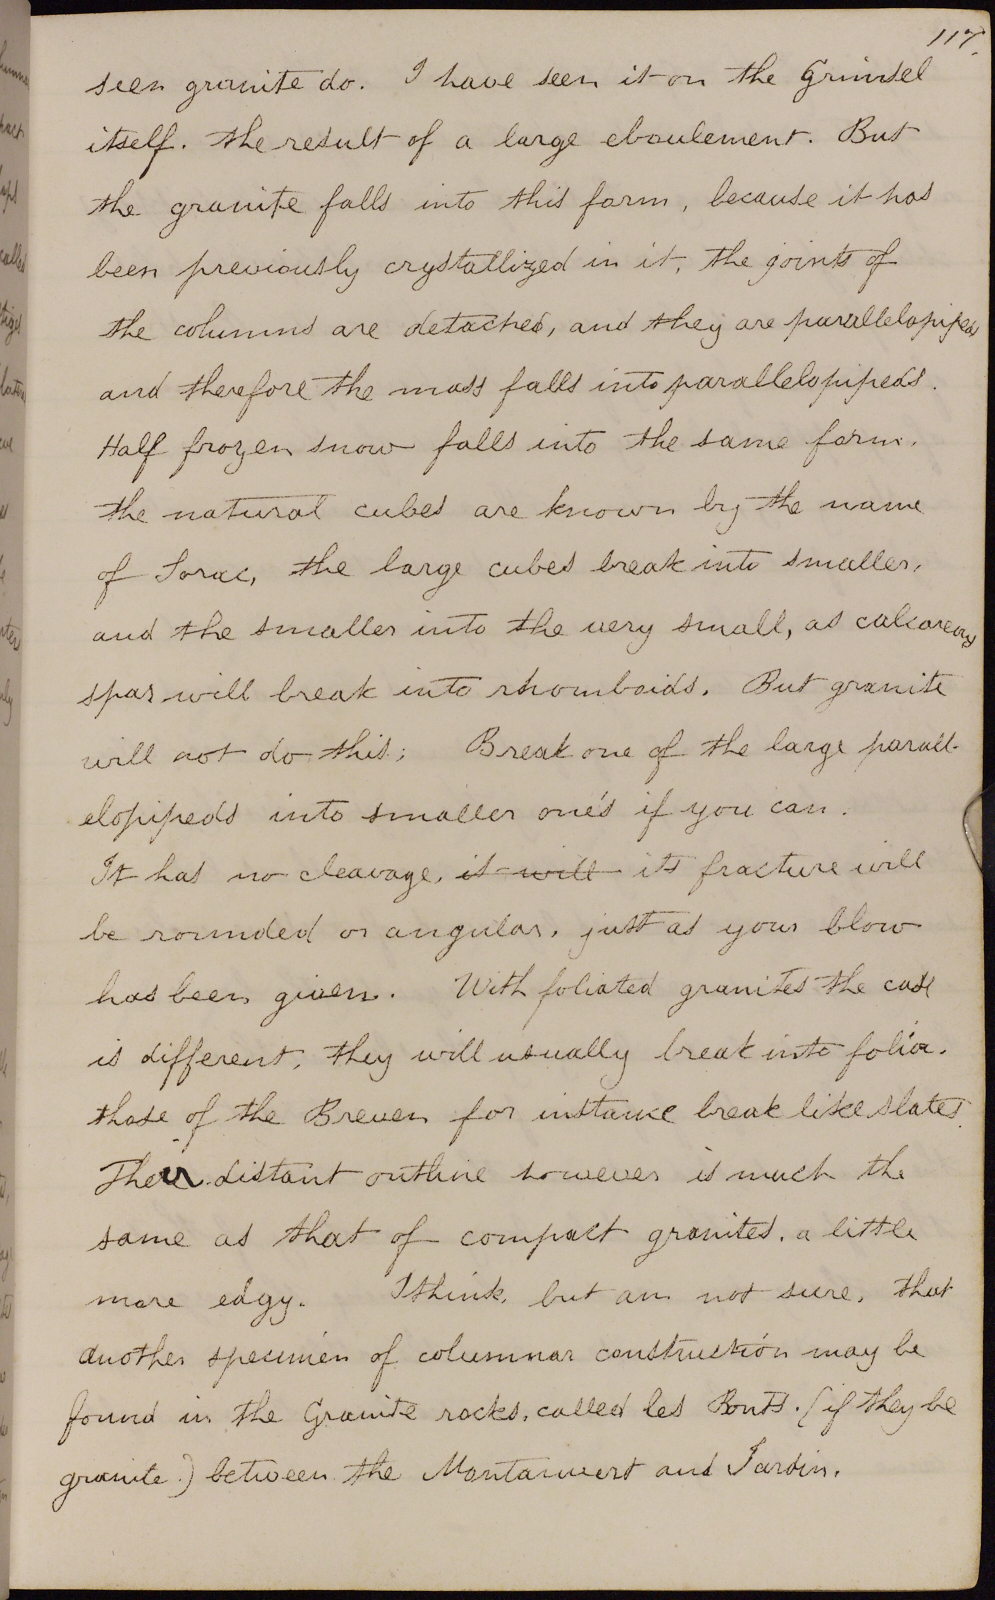 117.
seen granite do. I have seen it on the Grimsel
itself. the result of a large eboulement. But
the granite falls into this form, because it has
been previously crystallized in it, the joints of
the columns are detached, and they are parallelopipeds
and therefore the mass falls into parallelopipeds.
Half frozen snow falls into the same form.
the natural cubes are known by the name
of Serac, the large cubes break into smaller,
and the smaller into the very small, as calcareous
spar will break into rhomboids. But granite
will not do this; Break one of the large parall-
elopipeds into smaller one's if you can.
It has no cleavage, it will its fracture will
be rounded or angular, just as your blow
has been given. With foliated granites the case
is different, they will usually break into folia.
those of the Breven for instance break like slates.
Their distant outline however is much the
same as that of compact granites, a little
more edgy. I think, but am not sure, that
another specimen of columnar construction may be
found in the Granite rocks, called les Ponts. (if they be
granite.) between the Montanvert and Jardin.